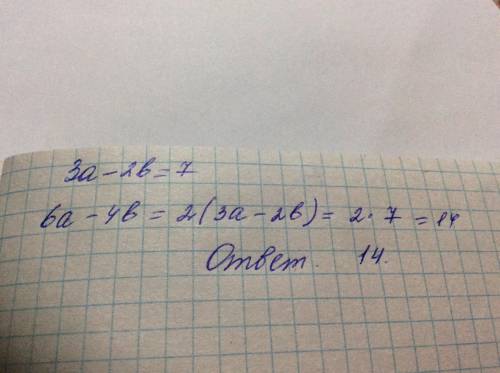 3a - 2b = 7
6a - 4b = 2(3a - 2b) = 2 · 7 = 14
Ответ. 14.